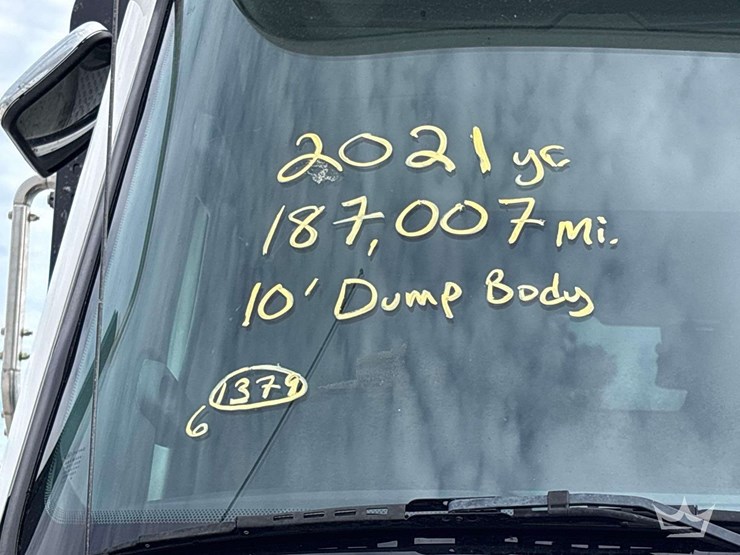 2021 yr
187,007 mi.
10' Dump Body
1379
6